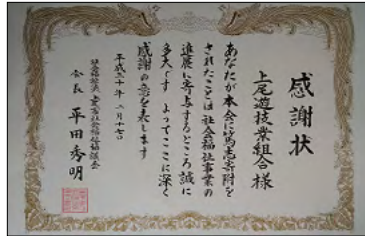 感謝状
上尾遊技業組合様
あなたが本会に篤志寄附を
されたことは社会福祉事業の
進展に寄与するところ誠に
多大です よってここに深く
感謝の意を表します
平成三十年二月十七日
社会福祉法人上尾市社会福祉協議会
会長 平田秀明